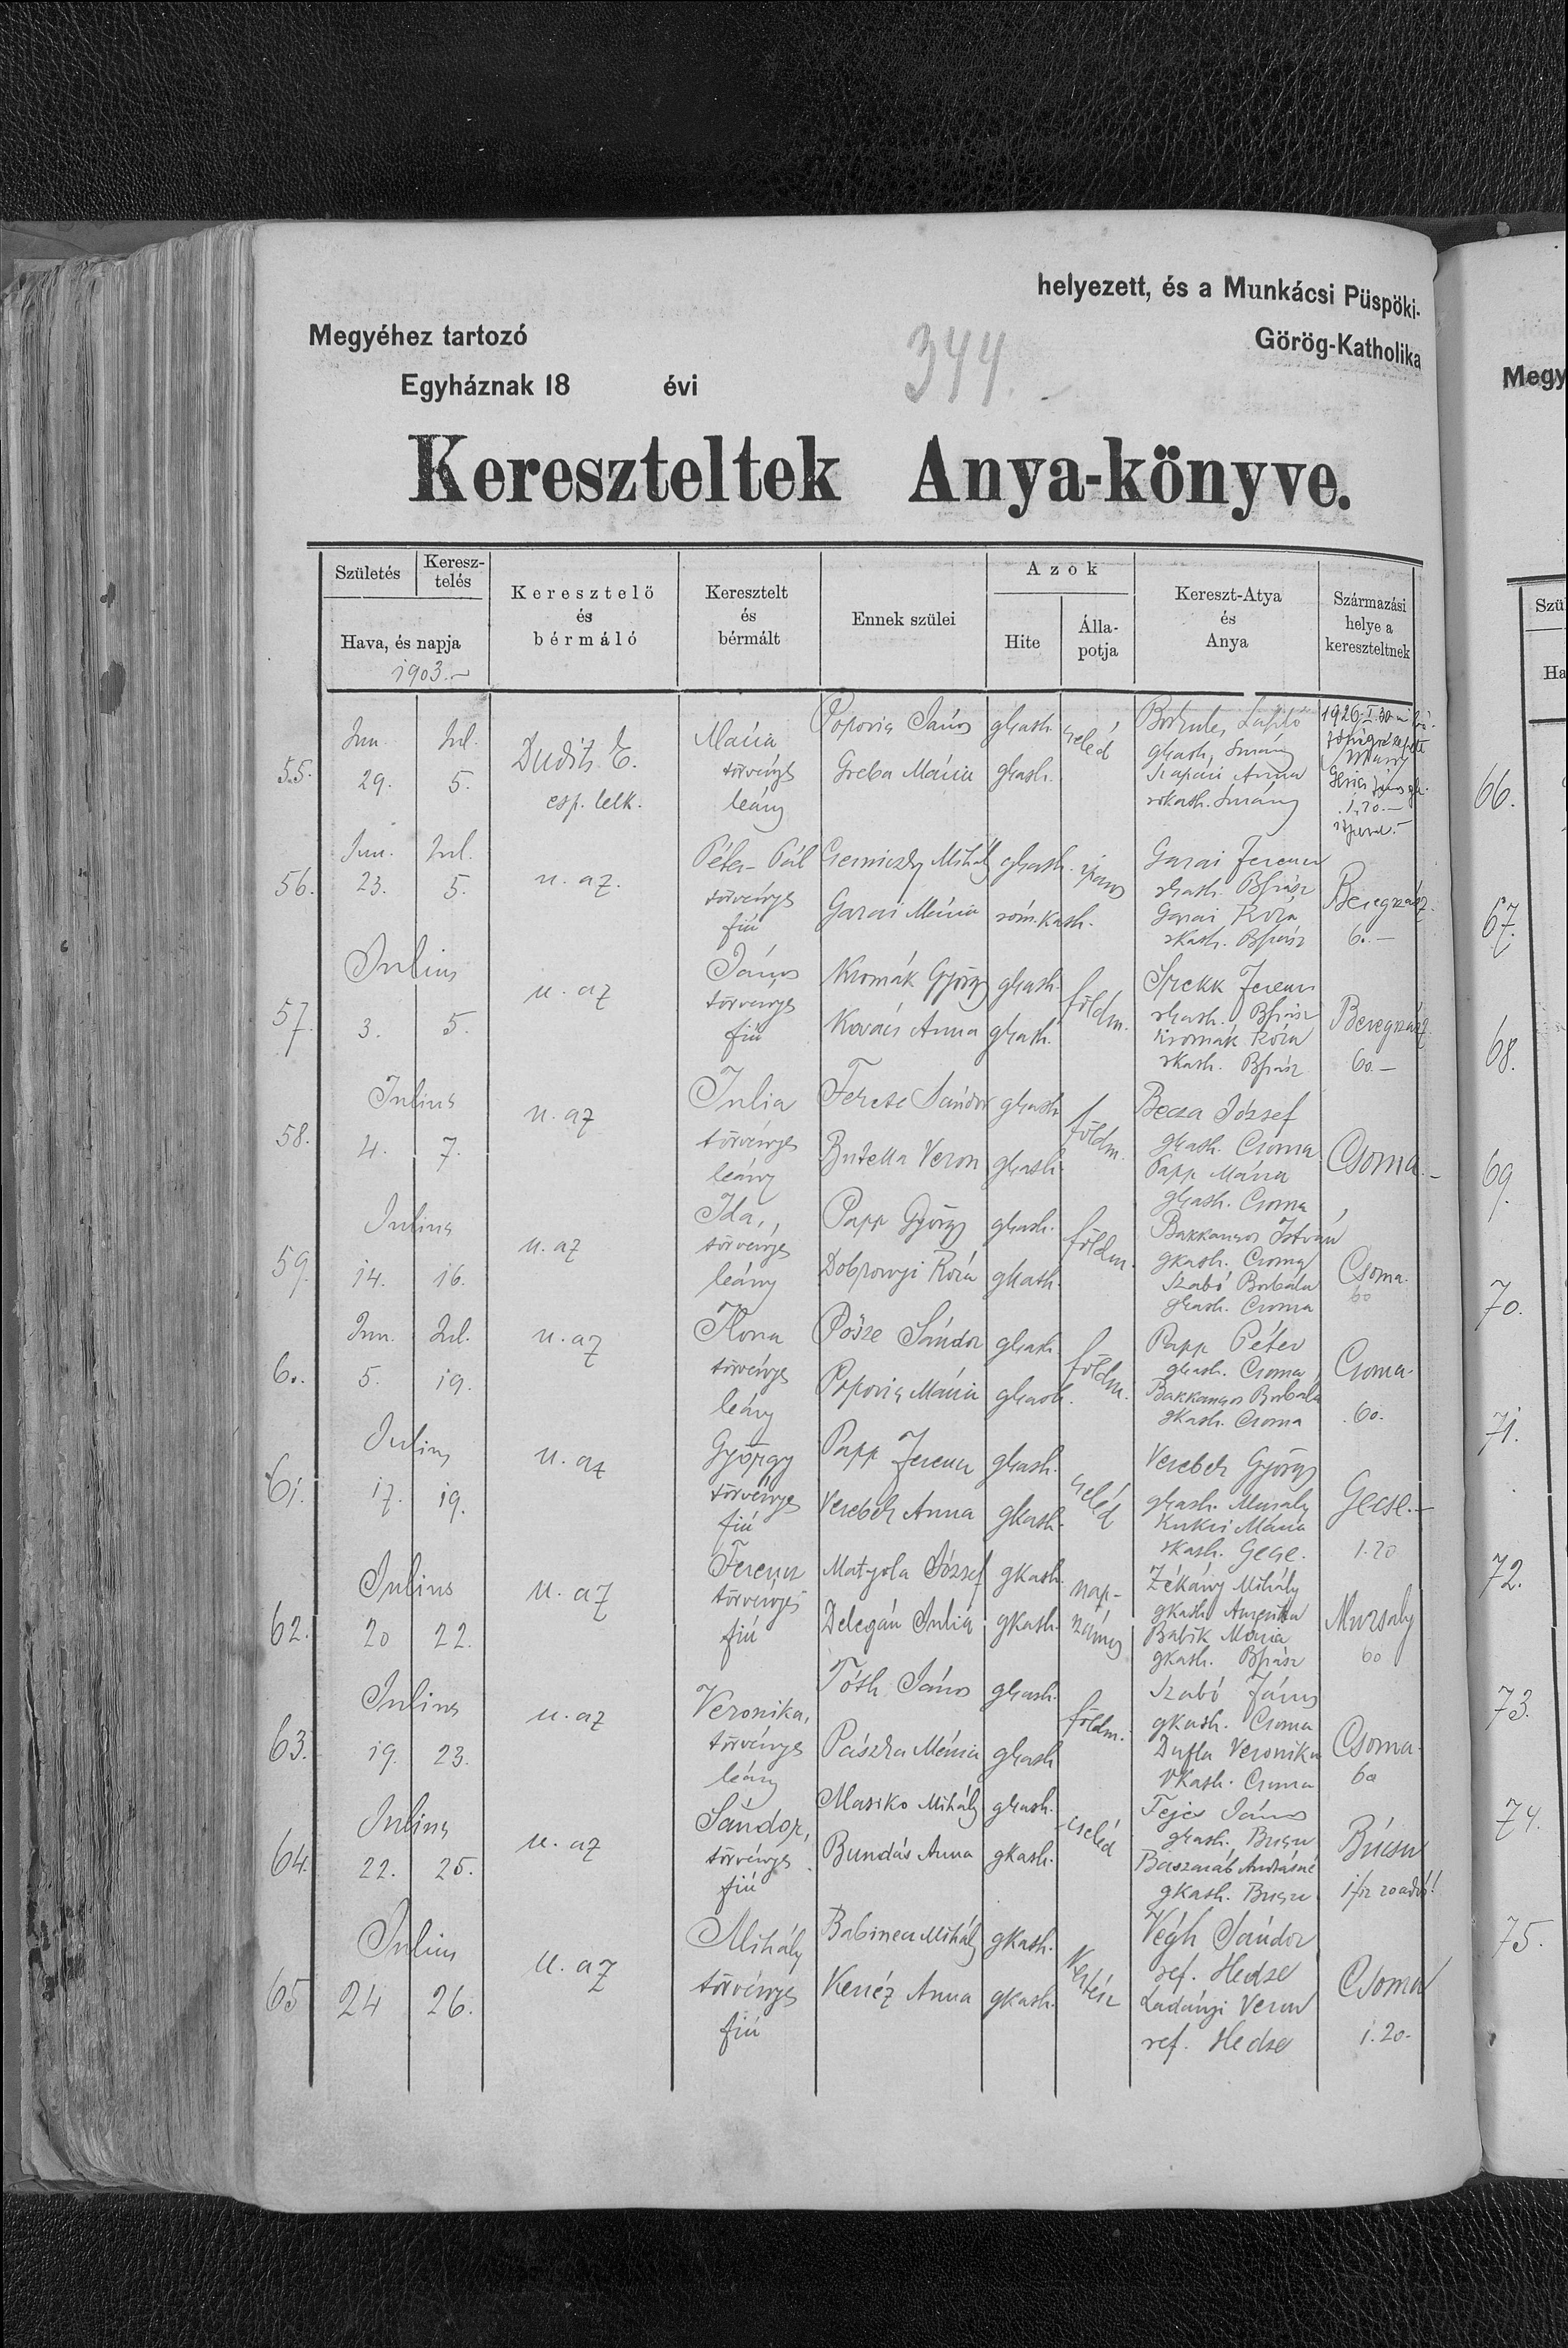 helyezett, és a Munkácsi Püspöki-
Megyéhez tartozó
Görög-Katholika
Egyháznak 18 évi
344.
Kereszteltek Anya-könyve.
Születés
Keresz-
telés
Hava, és napja
1903.
Keresztelő
és
bérmáló
Keresztelt
és
bérmált
Ennek szülei
Azok
Hite
Álla-
potja
Kereszt-Atya
és
Anya
Származási
helye a
kereszteltnek
55.
Jun. Jul.
29. 5.
Dudits E.
esp. lelk.
Mária
törvényes
leány
Popovics János gkath. cseléd
Greba Mária gkath.
László
gkath.
Anna
rkath.
1926. I. 30
1.20.-
56.
Jun. Jul.
23. 5.
u. az.
Péter-Pál
törvényes
fiú
Mihály gkath. iparos
Garai Mária róm. kath.
Garai Ferencz
rkath. Bszász
Garai Róza
rkath. Bszász
Beregszász.
60.-
57.
Julius
3. 5.
u. az
János
törvényes
fiú
Kromák György gkath. földm.
Kovács Anna gkath.
Spekk Ferencz
rkath. Bszász
Kromák Róza
rkath. Bszász
Beregszász
60.-
58.
Julius
4. 7.
u. az
Julia
törvényes
leány
Fercse Sándor gkath. földm.
Butella Veron gkath.
Becza József
gkath. Csoma
Papp Mária
gkath. Csoma
Csoma.-
59.
Julius
14. 16.
u. az
Ida,
törvényes
leány
Papp György gkath. földm.
Dobronyi Róza gkath.
Bakkancsos István
gkath. Csoma
Szabó Borbála
gkath. Csoma
Csoma.
60
60.
Jun. Jul.
5. 19.
u. az
Ilona
törvényes
leány
Pősze Sándor gkath. földm.
Popovics Mária gkath.
Papp Péter
gkath. Csoma
Bakkancsos Borbála
gkath. Csoma
Csoma.
60.
61.
Julius
17. 19.
u. az
György
törvényes
fiú
Papp Ferencz gkath. cseléd
Verebch Anna gkath.
Verebch György
gkath. Muzsaly
Mária
rkath. Gecse.
Gecse.-
1.20
62.
Julius
20 22.
u. az
Ferencz
törvényes
fiú
Matyola József gkath. nap-
számos
Delegán Julia gkath.
Zékány Mihály
gkath. Amerika
Babik Mária
gkath. Bszász
Muzsaly
60
63.
Julius
19. 23.
u. az
Veronika,
törvényes
leány
Tóth János gkath. földm.
Pászka Mária gkath
Szabó János
gkath. Csoma
Dufla Veronika
rkath. Csoma
Csoma.
60
64.
Julius
22. 25.
u. az
Sándor,
törvényes
fiú
Masiko Mihály gkath. cseléd
Bundás Anna gkath.
Fejes János
gkath. Bucsu
Baszaráb Andrásné
gkath. Bucsu
Búcsu
65
Julius
24 26.
u. az
Mihály
törvényes
fiú
Babinecz Mihály gkath. Kertész
Kenéz Anna gkath.
Végh Sándor
ref. Hedse
Ladányi Veron
ref. Hedse
Csoma
1.20.
Megy
Szü
Ha
66.
67.
68.
69.
70.
71.
72.
73.
74.
75.